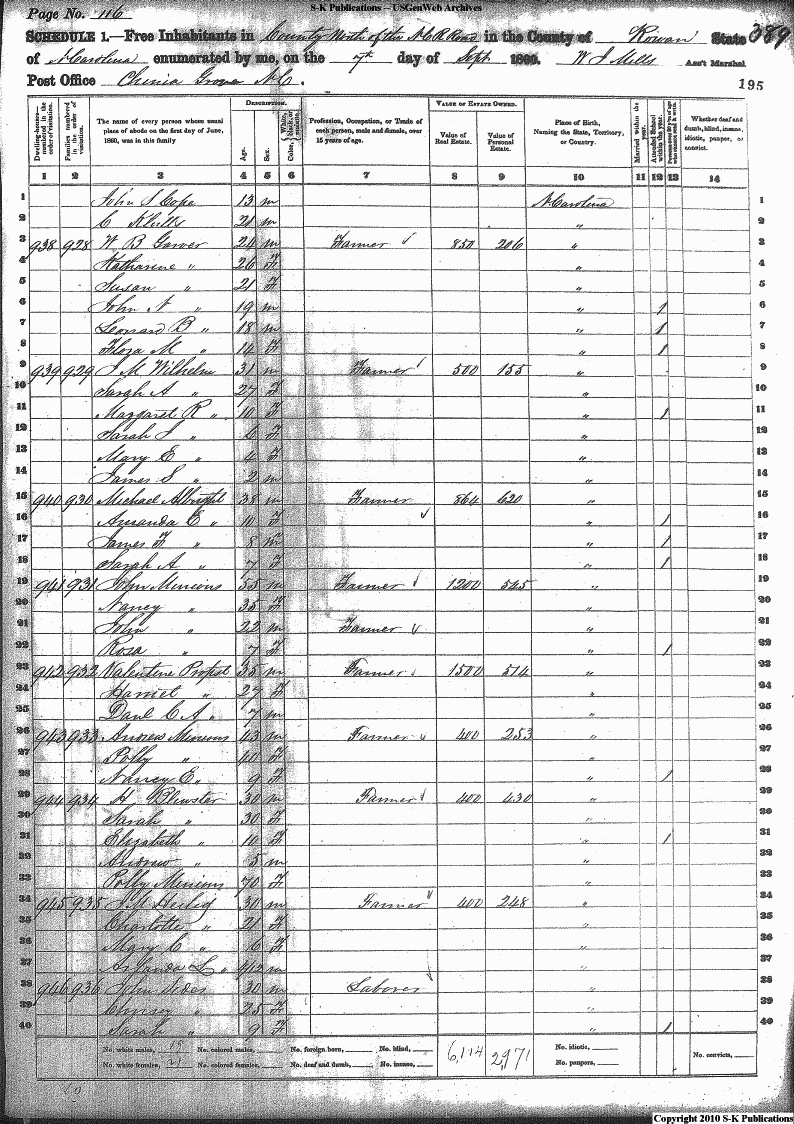 S-K Publications -- USGenWeb Archives
Page No. 116
389
SCHEDULE 1.—Free Inhabitants in County North of the N.C.R.Road in the County of Rowan State
of N Carolina enumerated by me, on the 7th day of Sept 1860. W J Mills Ass't Marshal.
Post Office China Grove N.C.
195
Dwelling-houses—numbered in the order of visitation.
Families numbered in the order of visitation.
The name of every person whose usual place of abode on the first day of June, 1860, was in this family
DESCRIPTION.
Age.
Sex.
Color, White, black, or mulatto.
Profession, Occupation, or Trade of each person, male and female, over 15 years of age.
VALUE OF ESTATE OWNED.
Value of Real Estate.
Value of Personal Estate.
Place of Birth, Naming the State, Territory, or Country.
Married within the year.
Attended School within the year.
Whether deaf and dumb, blind, insane, idiotic, pauper, or convict.
1 2 3 4 5 6 7 8 9 10 11 12 13 14
1 John S Cope 13 m N Carolina 1
2 C Klutts 21 m " 2
3 938 928 W B Garver 24 m Farmer 850 206 " 3
4 Katharine " 26 F " 4
5 Susan " 21 F " 5
6 John N " 19 m " / 6
7 Leonard B " 18 m " / 7
8 Flora M " 14 F " / 8
9 939 929 J M Wilhelm 31 m Farmer 500 155 " 9
10 Sarah A " 27 F " 10
11 Margaret R " 10 F " / 11
12 Sarah J " 6 F " 12
13 Mary E " 4 F " 13
14 James S " 2 m " 14
15 940 930 Michael Albright 38 m Farmer 864 620 " 15
16 Amanda E " 10 F " / 16
17 James F " 8 m " / 17
18 Sarah A " 7 F " / 18
19 941 931 John Menious 55 m Farmer 1200 545 " 19
20 Nancy " 35 F " 20
21 John " 22 m Farmer " 21
22 Rosa " 7 F " / 22
23 942 932 Valentine Propst 35 m Farmer 1500 514 " 23
24 Harriet " 27 F " 24
25 Danl C A " 7 m " 25
26 943 933 Andrew Menious 43 m Farmer 400 253 " 26
27 Polly " 40 F " 27
28 Nancy E " 9 F " / 28
29 944 934 H Brewster 30 m Farmer 400 430 " 29
30 Sarah " 30 F " 30
31 Elizabeth " 10 F " / 31
32 " 5 m " 32
33 Polly Menious 70 F 33
34 945 935 J M Hulig 30 m Farmer 400 248 " 34
35 Charlotte " 21 F " 35
36 Mary C " 6 F " 36
37 L " m " 37
38 946 936 John 30 m Laborer " 38
39 " 25 F " 39
40 Sarah " 9 F " / 40
No. white males, 19 No. colored males, No. foreign born, No. blind, 6,114 2,971 No. idiotic, No. convicts,
No. white females, 21 No. colored females, No. deaf and dumb, No. insane, No. paupers,
Copyright 2010 S-K Publications